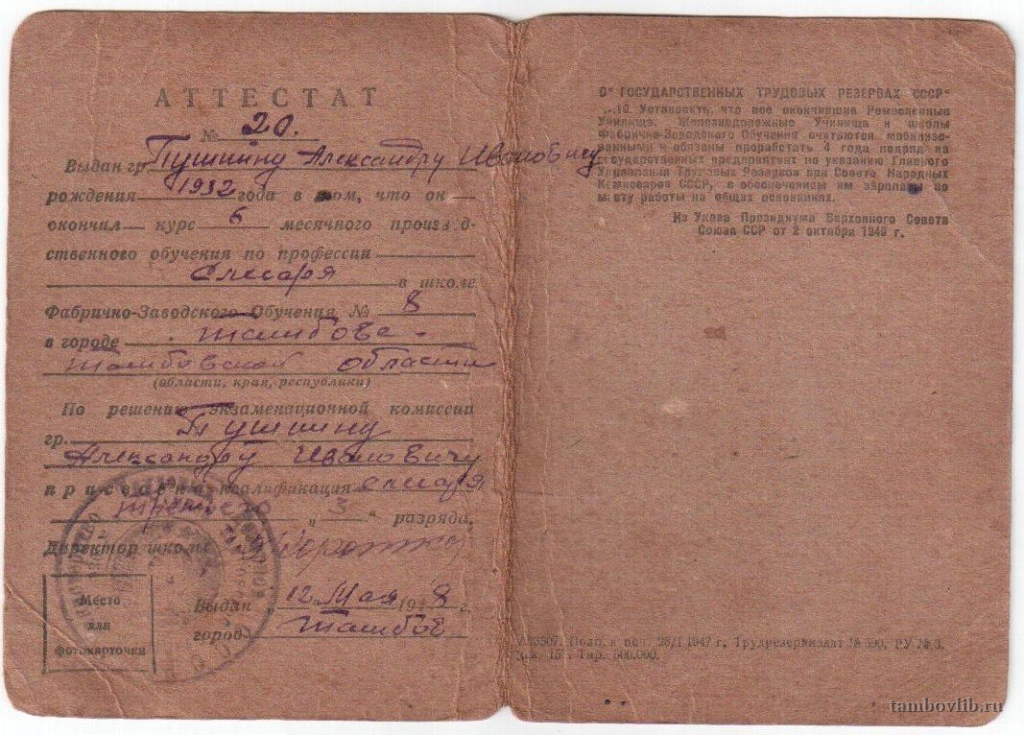 АТТЕСТАТ
№ 20.
Выдан гр. Пушнину Александру Ивановичу
рождения 1932 года в том, что он
окончил курс 6 месячного производ-
ственного обучения по профессии
слесаря в школе
Фабрично-Заводского Обучения № 8
в городе Тамбове
Тамбовской области
(области, края, республики)
По решению экзаменационной комиссии
гр. Пушнину
Александру Ивановичу
присвоена квалификация слесаря
третьего „3“ разряда,
Директор школы
Выдан 12 Мая 1948 г.
город Тамбов
Место
для
фотокарточки
О" ГОСУДАРСТВЕННЫХ ТРУДОВЫХ РЕЗЕРВАХ СССР"
10. Установить, что все окончившие Ремесленные
Училища, Железнодорожные Училища и школы
Фабрично-Заводского Обучения считаются мобилизо-
ванными и обязаны проработать 4 года подряд на
государственных предприятиях по указанию Главного
Управления Трудовых Резервов при Совете Народных
Комиссаров СССР, с обеспечением им зарплаты по
месту работы на общих основаниях.
Из Указа Президиума Верховного Совета
Союза ССР от 2 октября 1940 г.
Подп. к печ. 28/I 1947 г. Трудрезервиздат № 590. РУ № 3.
Зак. 15 Тир. 500.000.
tambovlib.ru